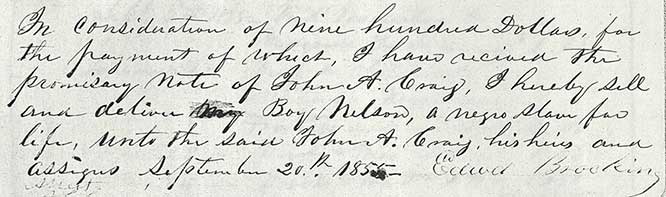 In consideration of nine hundred Dollars, for
the payment of which, I have recived the
promisary note of John A. Craig, I hereby sell
and deliver my Boy Nelson, a negro slave for
life, unto the said John A. Craig, his heirs and
assigns September 20.th 1855 Edwd Brocking